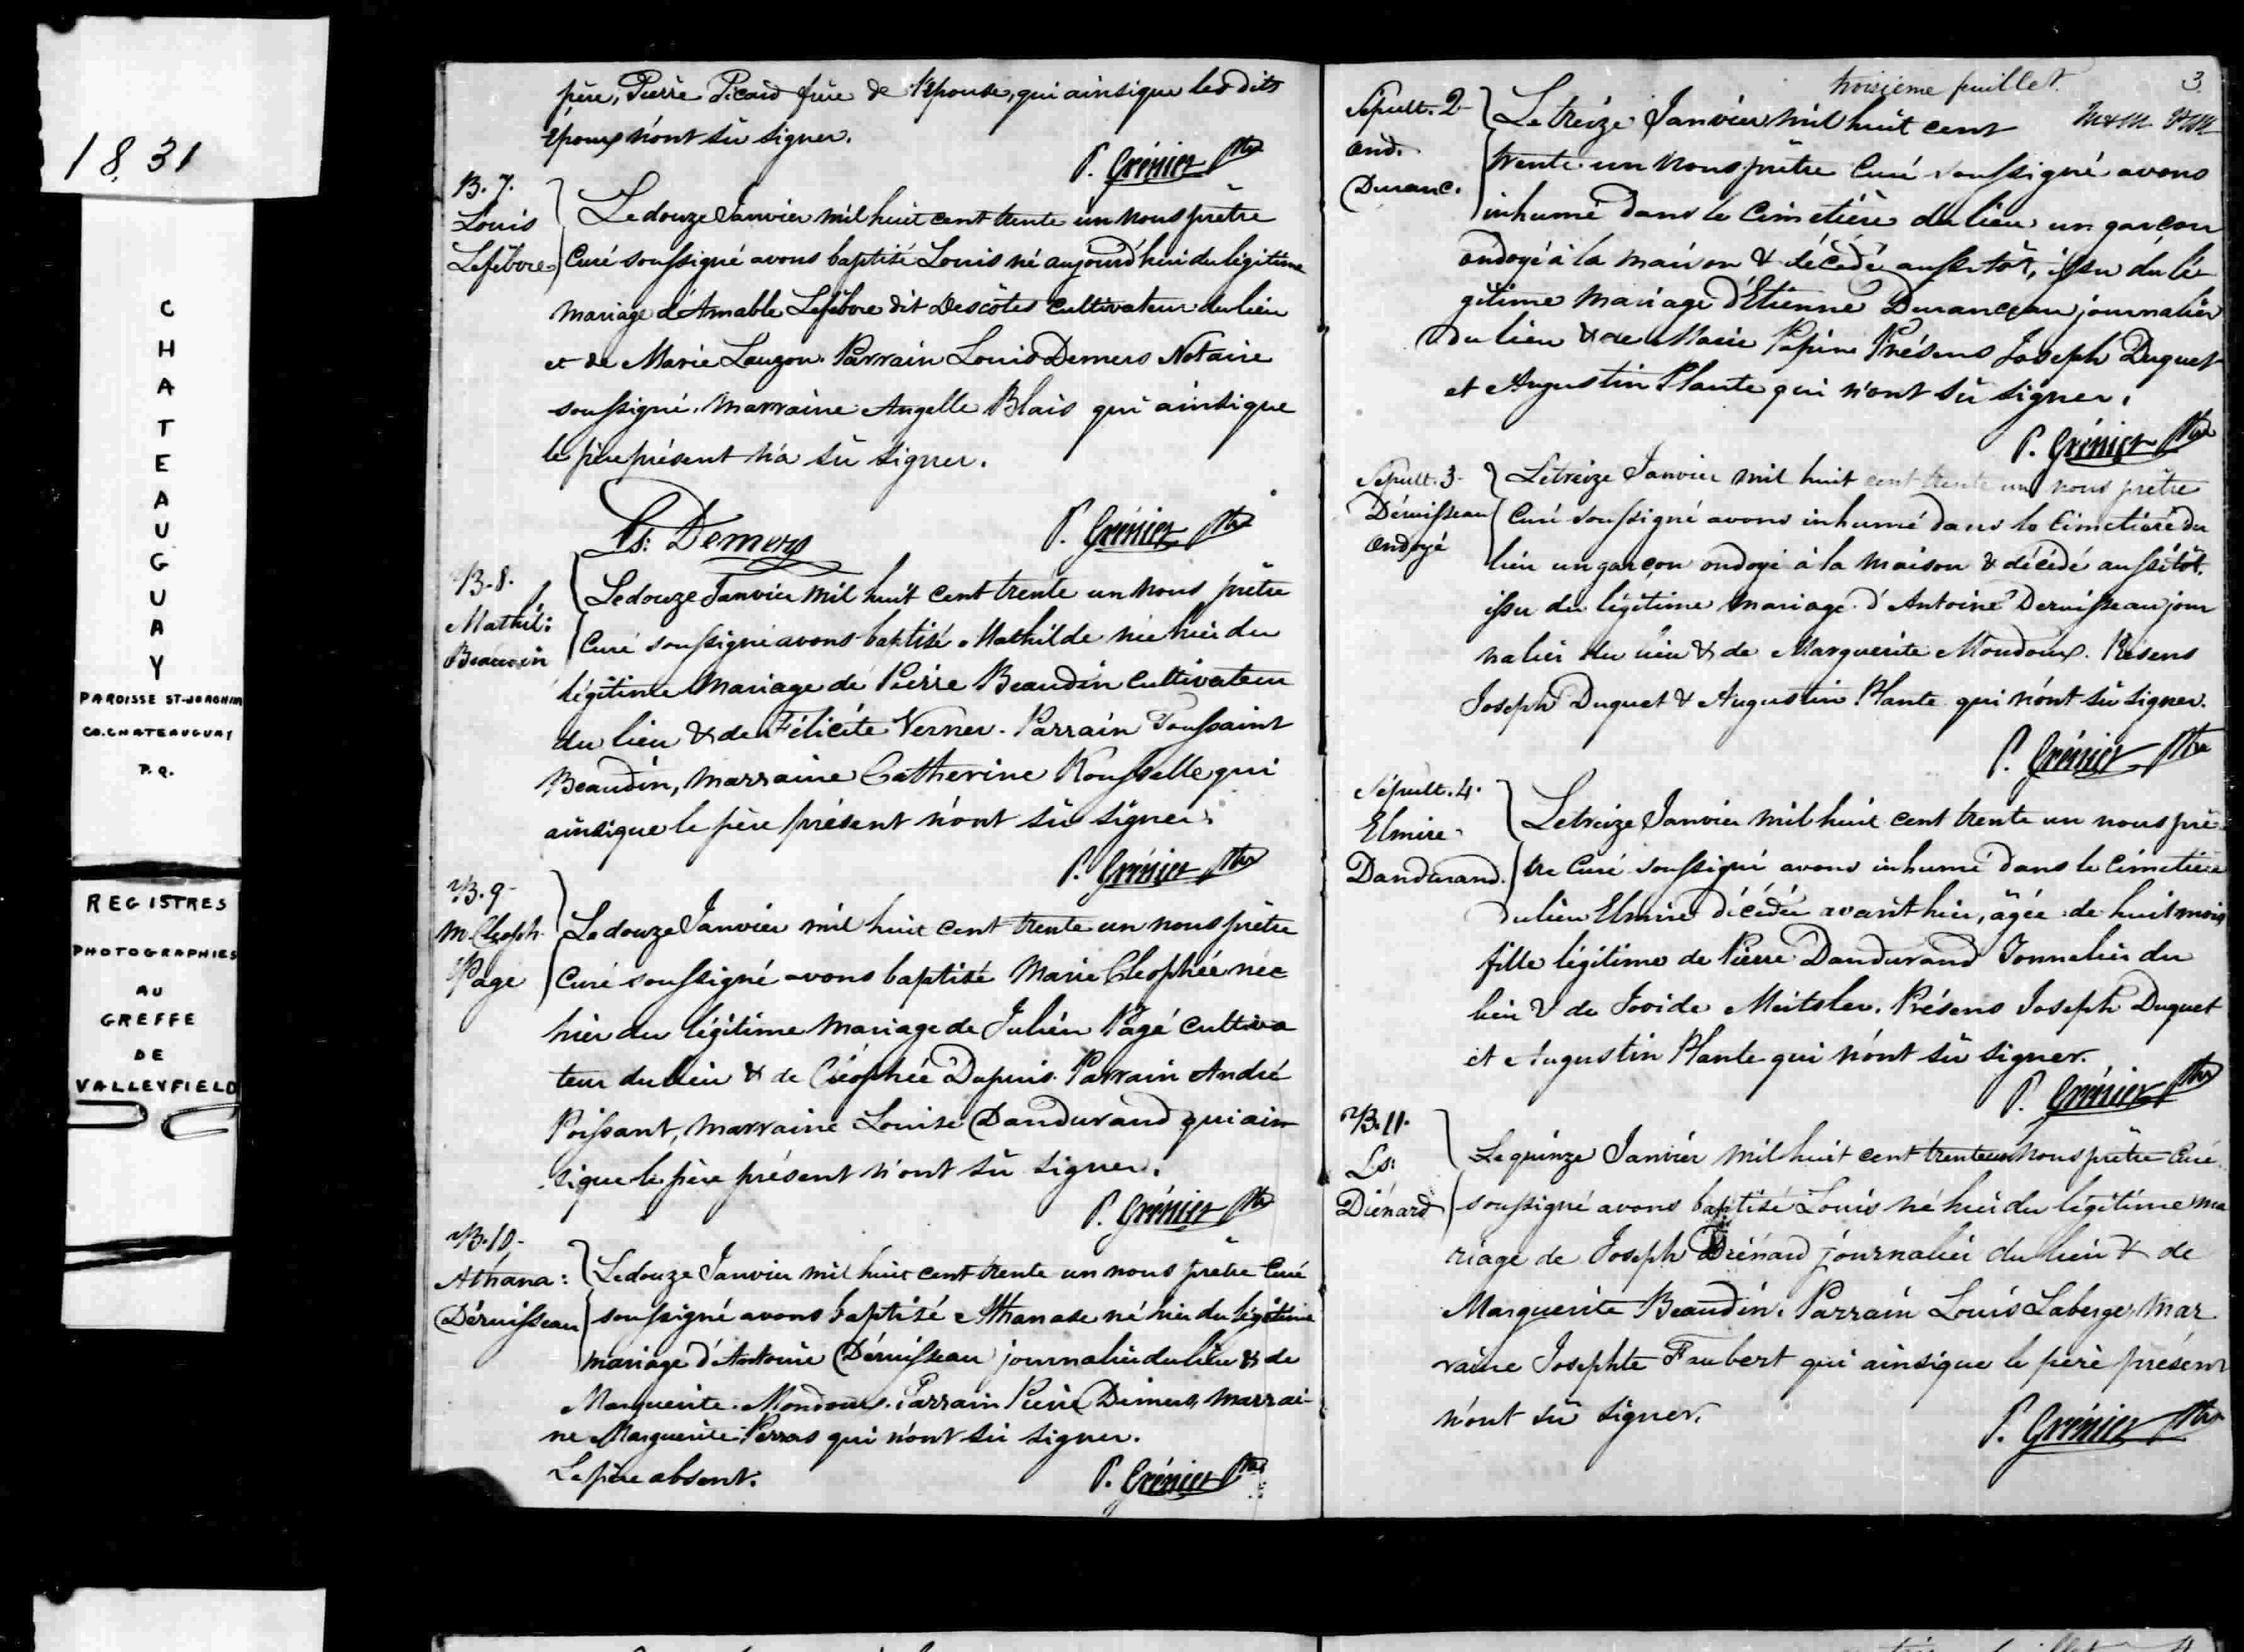 1831
CHATEAUGUAY
PAROISSE ST-JOACHIM
CO. CHATEAUGUAY
P.Q.
REGISTRES
PHOTOGRAPHIES
AU
GREFFE
DE
VALLEYFIELD
père, Pierre Picard frère de l'épouse, qui ainsique les dits
époux n'ont sû signer.
P. Grénier Ptre
B. 7.
Louis
Lefebvre
Le douze Janvier mil huit cent trente un nous prêtre
Curé soussigné avons baptisé Louis né aujourd'hui du légitime
mariage d'Amable Lefebvre dit Descôtes Cultivateur du lieu
et de Marie Lauzon. Parrain Louis Demers Notaire
soussigné. Marraine Angelle Blais qui ainsique
le père présent n'a sû signer.
Ls: Demers P. Grénier Ptre
B. 8.
Mathil:
Beaudin
Le douze Janvier mil huit cent trente un nous prêtre
Curé soussigné avons baptisé Mathilde née hier du
légitime Mariage de Pierre Beaudin Cultivateur
du lieu & de Félicité Verner. Parrain Toussaint
Beaudin, Marraine Catherine Rousselle qui
ainsique le père présent n'ont sû signer.
P. Grénier Ptre
B. 9.
M. Cleoph.
Page
Le douze Janvier mil huit cent trente un nous prêtre
Curé soussigné avons baptisé Marie Cleophée née
hier du légitime Mariage de Julien Pagé Cultiva
teur du lieu & de Cléophée Dupuis. Parrain André
Poissant, Marraine Louise Dandurand qui ain
sique le père présent n'ont sû signer.
P. Grénier Ptre
B. 10.
Athana:
Déruisseau
Le douze Janvier mil huit cent trente un nous prêtre Curé
soussigné avons baptisé Athanase né hier du légitime
mariage d'Antoine Déruisseau journalier du lieu & de
Marguerite Mondoux. Parrain Pierre Demers, Marrai-
ne Marguerite Perras qui n'ont sû signer.
Le père absent. P. Grénier Ptre
troisième feuillet. 3.
Sépult. 2
Ond.
Duranc.
Le treize Janvier mil huit cent
trente un nous prêtre Curé soussigné avons
inhumé dans le Cimetière du lieu un garçon
ondoyé à la maison & décédé aussitôt, issu du lé
gitime Mariage d'Etienne Duranceau journalier
du lieu & de Marie Papin. Présens Joseph Duquet
et Augustin Plante qui n'ont sû signer.
P. Grénier Ptre
Sépult. 3.
Déruisseau
Ondoyé
Le treize Janvier mil huit cent trente un nous prêtre
Curé soussigné avons inhumé dans le Cimetière du
lieu un garçon ondoyé à la maison & décédé aussitôt.
issu du légitime Mariage d'Antoine Deruisseau jour
nalier du lieu & de Marguerite Mondoux. Présens
Joseph Duquet & Augustin Plante qui n'ont sû signer.
P. Grénier Ptre
Sépult. 4.
Elmire
Dandurand.
Le treize Janvier mil huit cent trente un nous prê
tre Curé soussigné avons inhumé dans le Cimetière
du lieu Elmire décédée avant hier, âgée de huit mois
fille légitime de Pierre Dandurand Tonnelier du
lieu & de Jovide Meitsler. Présens Joseph Duquet
et Augustin Plante qui n'ont sû signer.
P. Grénier Ptre
B. 11.
Ls:
Diénard
Le quinze Janvier mil huit cent trente un nous prêtre Curé
soussigné avons baptisé Louis né hier du légitime ma
riage de Joseph Diénard journalier du lieu & de
Marguerite Beaudin. Parrain Louis Laberge, Mar
raine Josephte Faubert qui ainsique le père présent
n'ont sû signer. P. Grénier Ptre